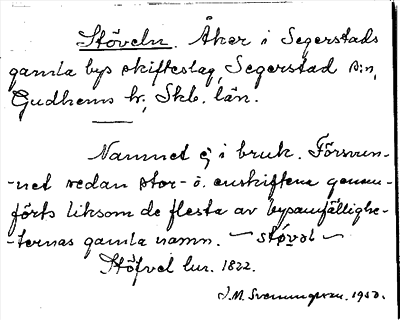 Stöveln. Åker i Segerstads
gamla bys skifteslag, Segerstad s:n,
Gudhems hd, Skb. län.
Namnet ej i bruk. Försvun-
-net sedan stor- o. enskiftena genom-
förts liksom de flesta av bysamfällighe-
-ternas gamla namn. ~ støvəl ~
Stöfvel lur. 1822.
J.M. Svenungsson. 1950.